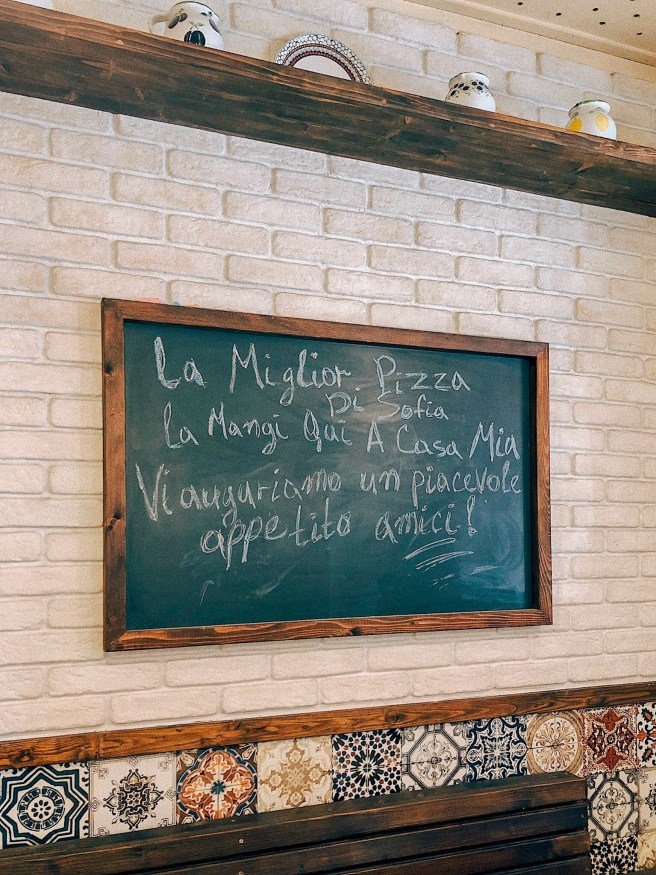 La Miglior Pizza
Di Sofia
La Mangi Qui A Casa Mia
Vi auguriamo un piacevole
appetito amici!